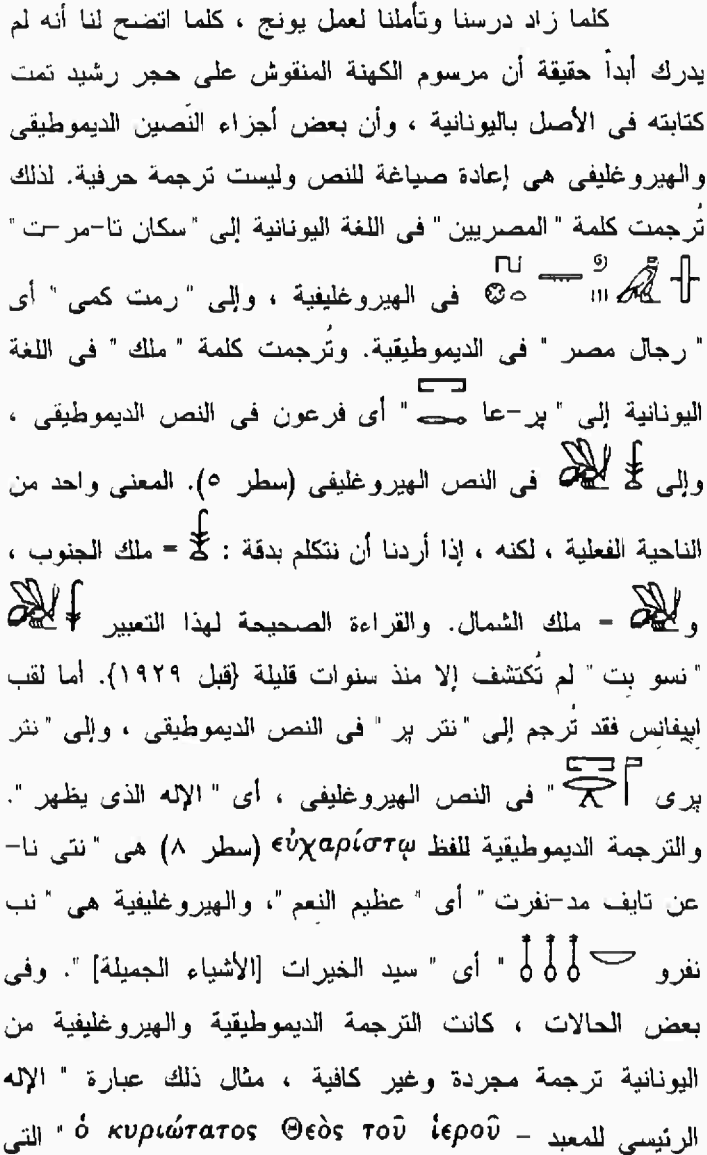 كلما زاد درسنا وتأملنا لعمل يونج ، كلما اتضح لنا أنه لم
يدرك أبداً حقيقة أن مرسوم الكهنة المنقوش على حجر رشيد تمت
كتابته فى الأصل باليونانية ، وأن بعض أجزاء النَصين الديموطيقى
والهيروغليفى هى إعادة صياغة للنص وليست ترجمة حرفية. لذلك
تُرجمت كلمة " المصريين " فى اللغة اليونانية إلى " سكان تا-مر-ت "
فى الهيروغليفية ، وإلى " رمت كمى " أى
" رجال مصر " فى الديموطيقية. وتُرجمت كلمة " ملك " فى اللغة
اليونانية إلى " پر-عا " أى فرعون فى النص الديموطيقى ،
وإلى فى النص الهيروغليفى (سطر ٥). المعنى واحد من
الناحية الفعلية ، لكنه ، إذا أردنا أن نتكلم بدقة : = ملك الجنوب ،
و = ملك الشمال. والقراءة الصحيحة لهذا التعبير
" نسو بِت " لم تُكتشف إلا منذ سنوات قليلة {قبل ١٩٢٩}. أما لقب
اپيفانِس فقد تُرجم إلى " نتر پر " فى النص الديموطيقى ، وإلى " نتر
پرى " فى النص الهيروغليفى ، أى " الإله الذى يظهر ".
والترجمة الديموطيقية للفظ εὐχαρίστῳ (سطر ٨) هى " نتى نا-
عن تايف مد-نفرت " أى " عظيم النِعم "، والهيروغليفية هى " نب
نفرو " أى " سيد الخيرات [الأشياء الجميلة] ". وفى
بعض الحالات ، كانت الترجمة الديموطيقية والهيروغليفية من
اليونانية ترجمة مجردة وغير كافية ، مثال ذلك عبارة " الإله
الرئيسى للمعبد – ὁ κυριώτατος Θεὸς τοῦ ἱεροῦ " التى